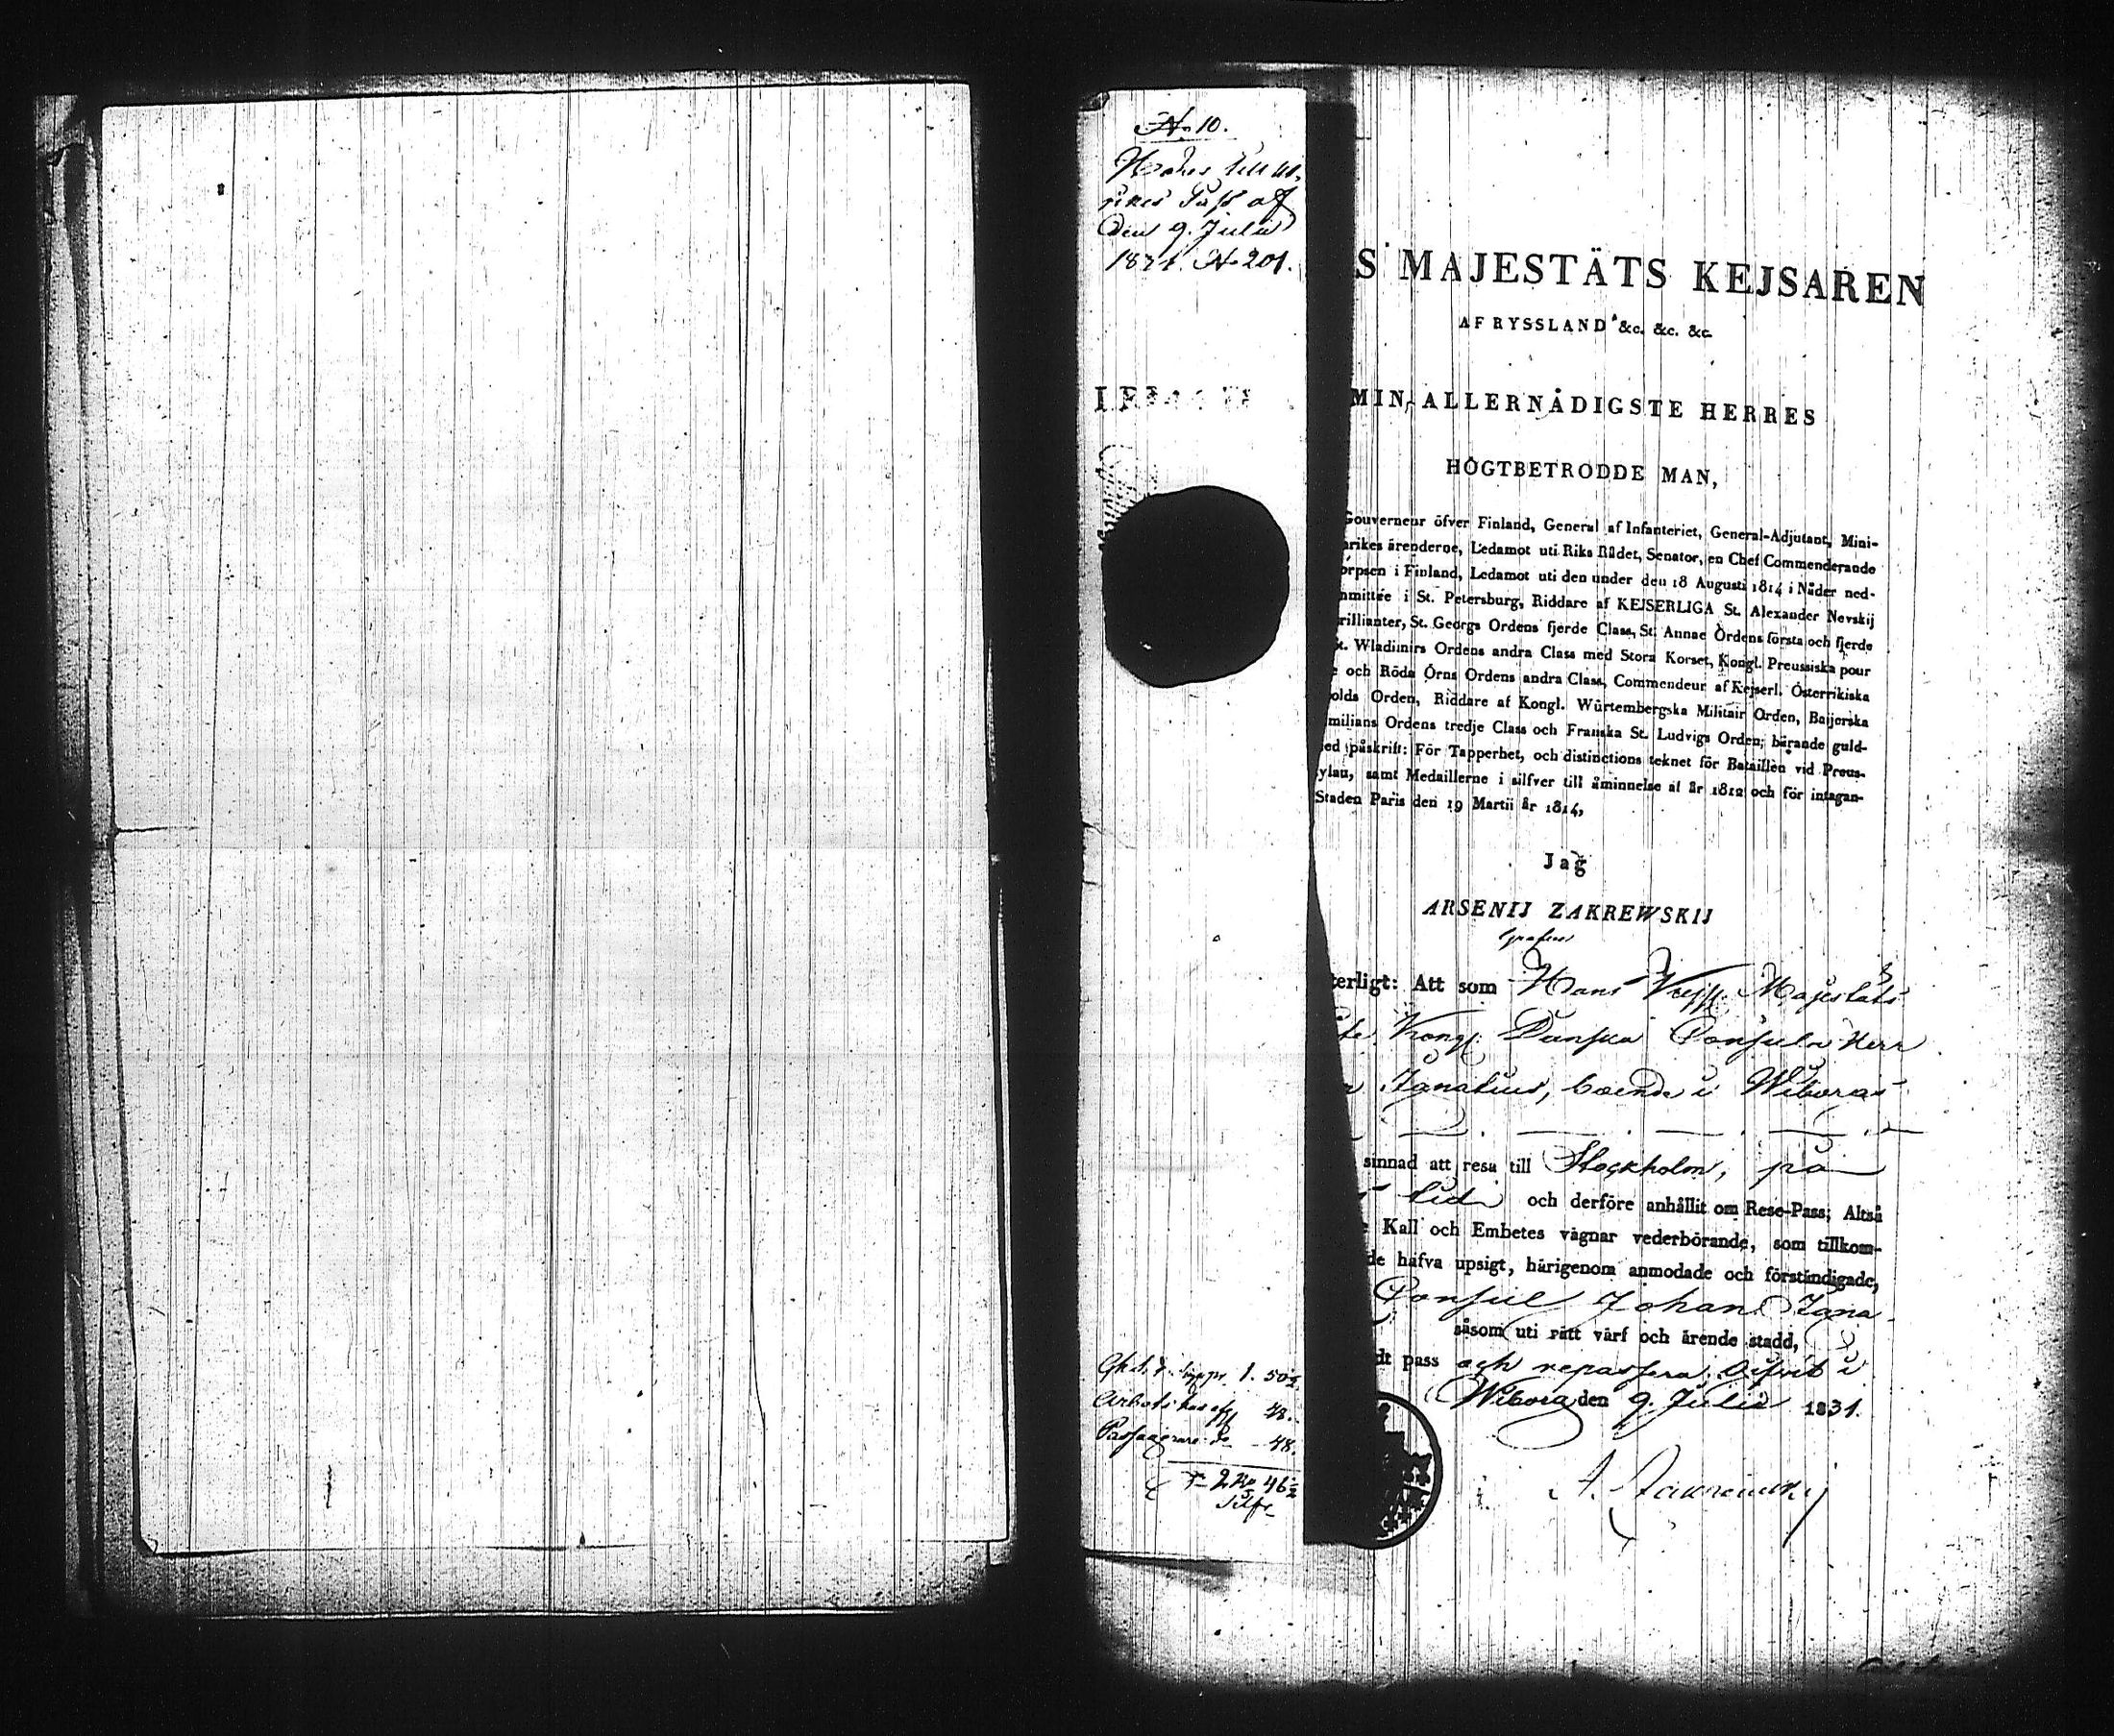 No 10.
Hörer till ut-
rikes Pass af
den 9. Julii
1831. No 201.
S MAJESTÄTS KEJSAREN
AF RYSSLAND &c. &c. &c.
MIN ALLERNÅDIGSTE HERRES
HÖGTBETRODDE MAN,
Gouverneur öfver Finland, General af Infanteriet, General-Adjutant, Mini-
rikes ärenderne, Ledamot uti Riks Rådet, Senator, en Chef Commenderande
orpsen i Finland, Ledamot uti den under den 18 Augusti 1814 i Nåder ned-
mmittée i St. Petersburg, Riddare af KEJSERLIGA St. Alexander Nevskij
rillianter, St. Georgs Ordens fjerde Class, St. Annae Ordens första och fjerde
St. Wladimirs Ordens andra Class med Stora Korset, Kongl. Preussiska pour
e och Röda Örns Ordens andra Class, Commendeur af Kejserl. Österrikiska
olds Orden, Riddare af Kongl. Würtembergska Militair Orden, Baijerska
milians Ordens tredje Class och Franska St. Ludvigs Orden; bärande guld-
ed påskrift: För Tapperhet, och distinctions teknet för Bataillen vid Preus-
ylau, samt Medaillerne i silfver till åminnelse af år 1812 och för intagan-
Staden Paris den 19 Martii år 1814,
Jag
ARSENIJ ZAKREWSKIJ
Grefve
terligt: Att som Hans Kejsl. Majestäts
Kongl. Danska Consuln Herr
Ignatius, boende i Wiborg
sinnad att resa till Stockholm, på
tid och derföre anhållit om Rese-Pass; Altså
e Kall och Embetes vägnar vederbörande, som tillkom-
de hafva upsigt, härigenom anmodade och förständigade,
Consul Johan Igna-
såsom uti rätt värf och ärende stadd,
dt pass och repassera. Gifvit i
Wiborg den 9. Julii 1831.
A. Zakrewskij
1. 50½
Arbetshus afg. 48.
Passagerare do 48.
2 Ro 46½
Silfr